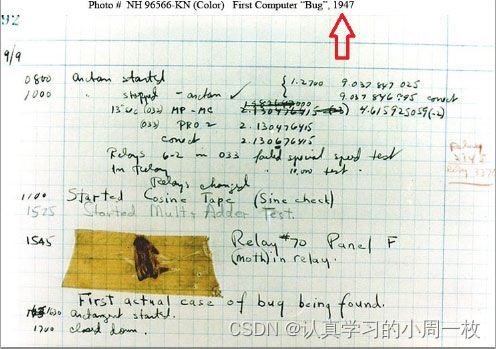 Photo # NH 96566-KN (Color) First Computer “Bug”, 1947
92
9/9
0800 antan started
1000 " stopped - antan ✓ { 1.2700 9.037 847 025
9.037 846 995 correct
13"uc (032) MP-MC 2.130476415 4.615925059(-2)
(033) PRO 2 2.130476415
correct 2.130676415
Relays 6-2 in 033 failed special speed test
in relay " 10,000 test.
Relays changed
1100 Started Cosine Tape (Sine check)
1525 Started Mult+Adder Test.
1545 Relay #70 Panel F
(moth) in relay.
First actual case of bug being found.
1630 antangent started.
1700 closed down.
Relay
2145
Relay 3370
CSDN @认真学习的小周一枚